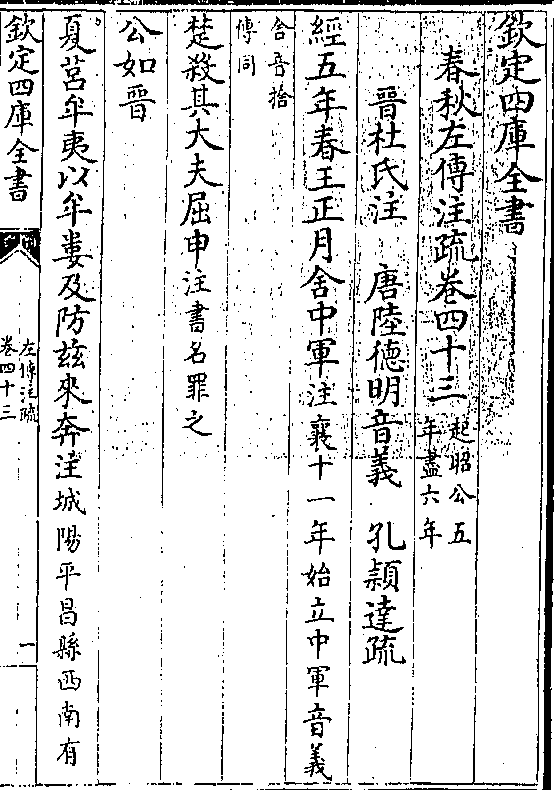 欽定四庫全書
春秋左傳注疏卷四十三
起昭公五
年盡六年
晉杜氏注 唐陸徳明音義 孔頴達疏
經五年春王正月舍中軍注襄十一年始立中軍音義
舍音捨
傳同
楚殺其大夫屈申注書名罪之
公如晉
夏莒牟夷以牟婁及防兹來奔注城陽平昌縣西南有
欽定四庫全書
左傳注疏
卷四十三
一